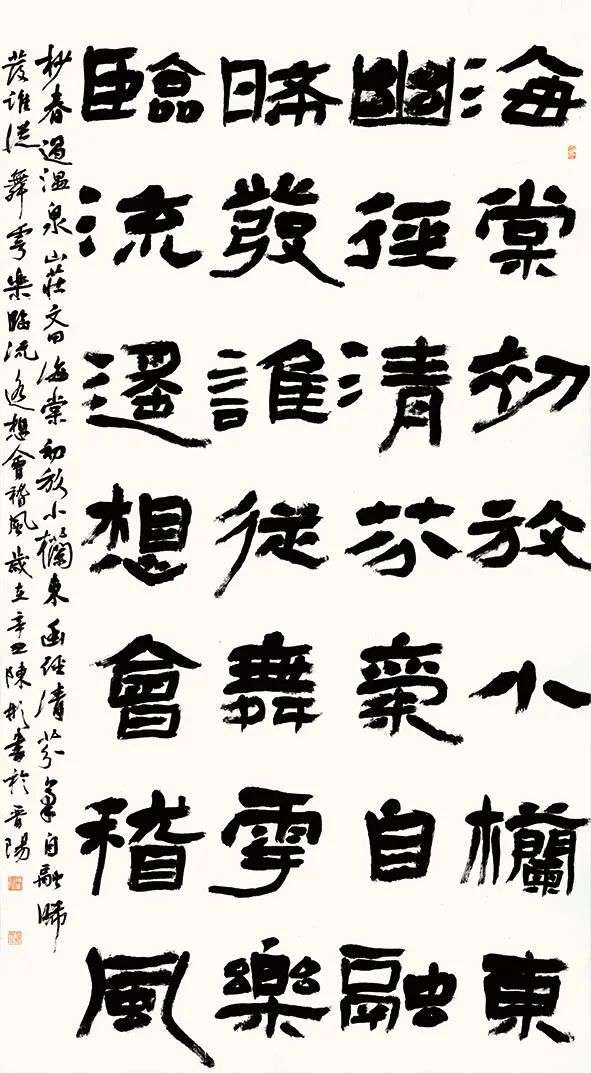 海棠初放小欄東
幽徑清芬氣自融
晞發誰從舞雩樂
臨流遥想會稽風
杪春過温泉山莊文曰海棠初放小欄東幽徑清芬氣自融晞
發誰從舞雩樂臨流遥想會稽風歲在辛丑陳彬書於晋陽